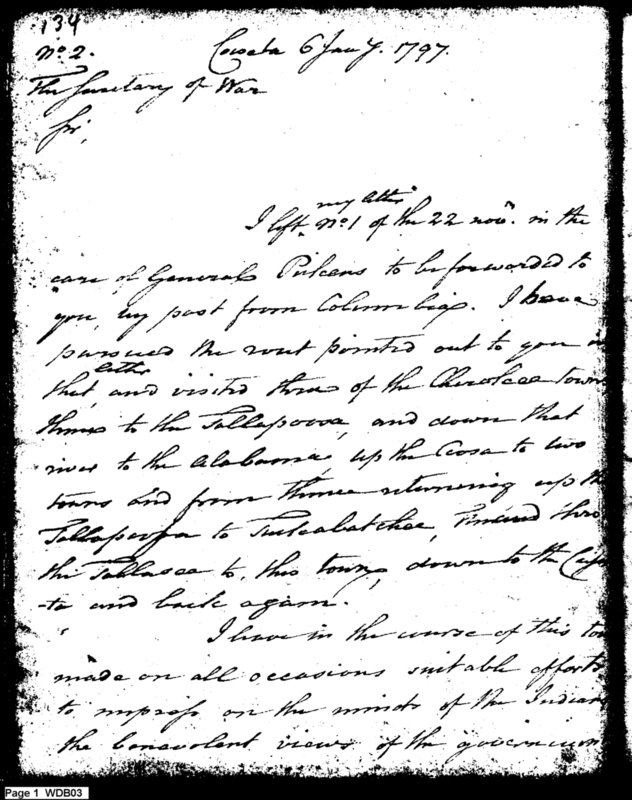 134
No. 2.
Coweta 6 Jany. 1797.
The Secretary of War
Sir,
my letter
I left No. 1 of the 22 novr. in the
care of General Pickens to be forwarded to
you, by post from Columbia. I have
pursued the rout pointed out to you in
letter
that, and visited three of the Cherokee towns
thence to the Tallapoosa, and down that
river to the Alabama, up the Coosa to two
towns and from thence returning up the
Tallapoosa to Tuckabatchee, thro
the Tallasee to, this town, down to the Cuse
-ta and back again.
I have in the course of this tou
made on all occasions suitable efforts
to impress on the minds of the Indians
the benevolent views of the governmen
Page 1 WDB03